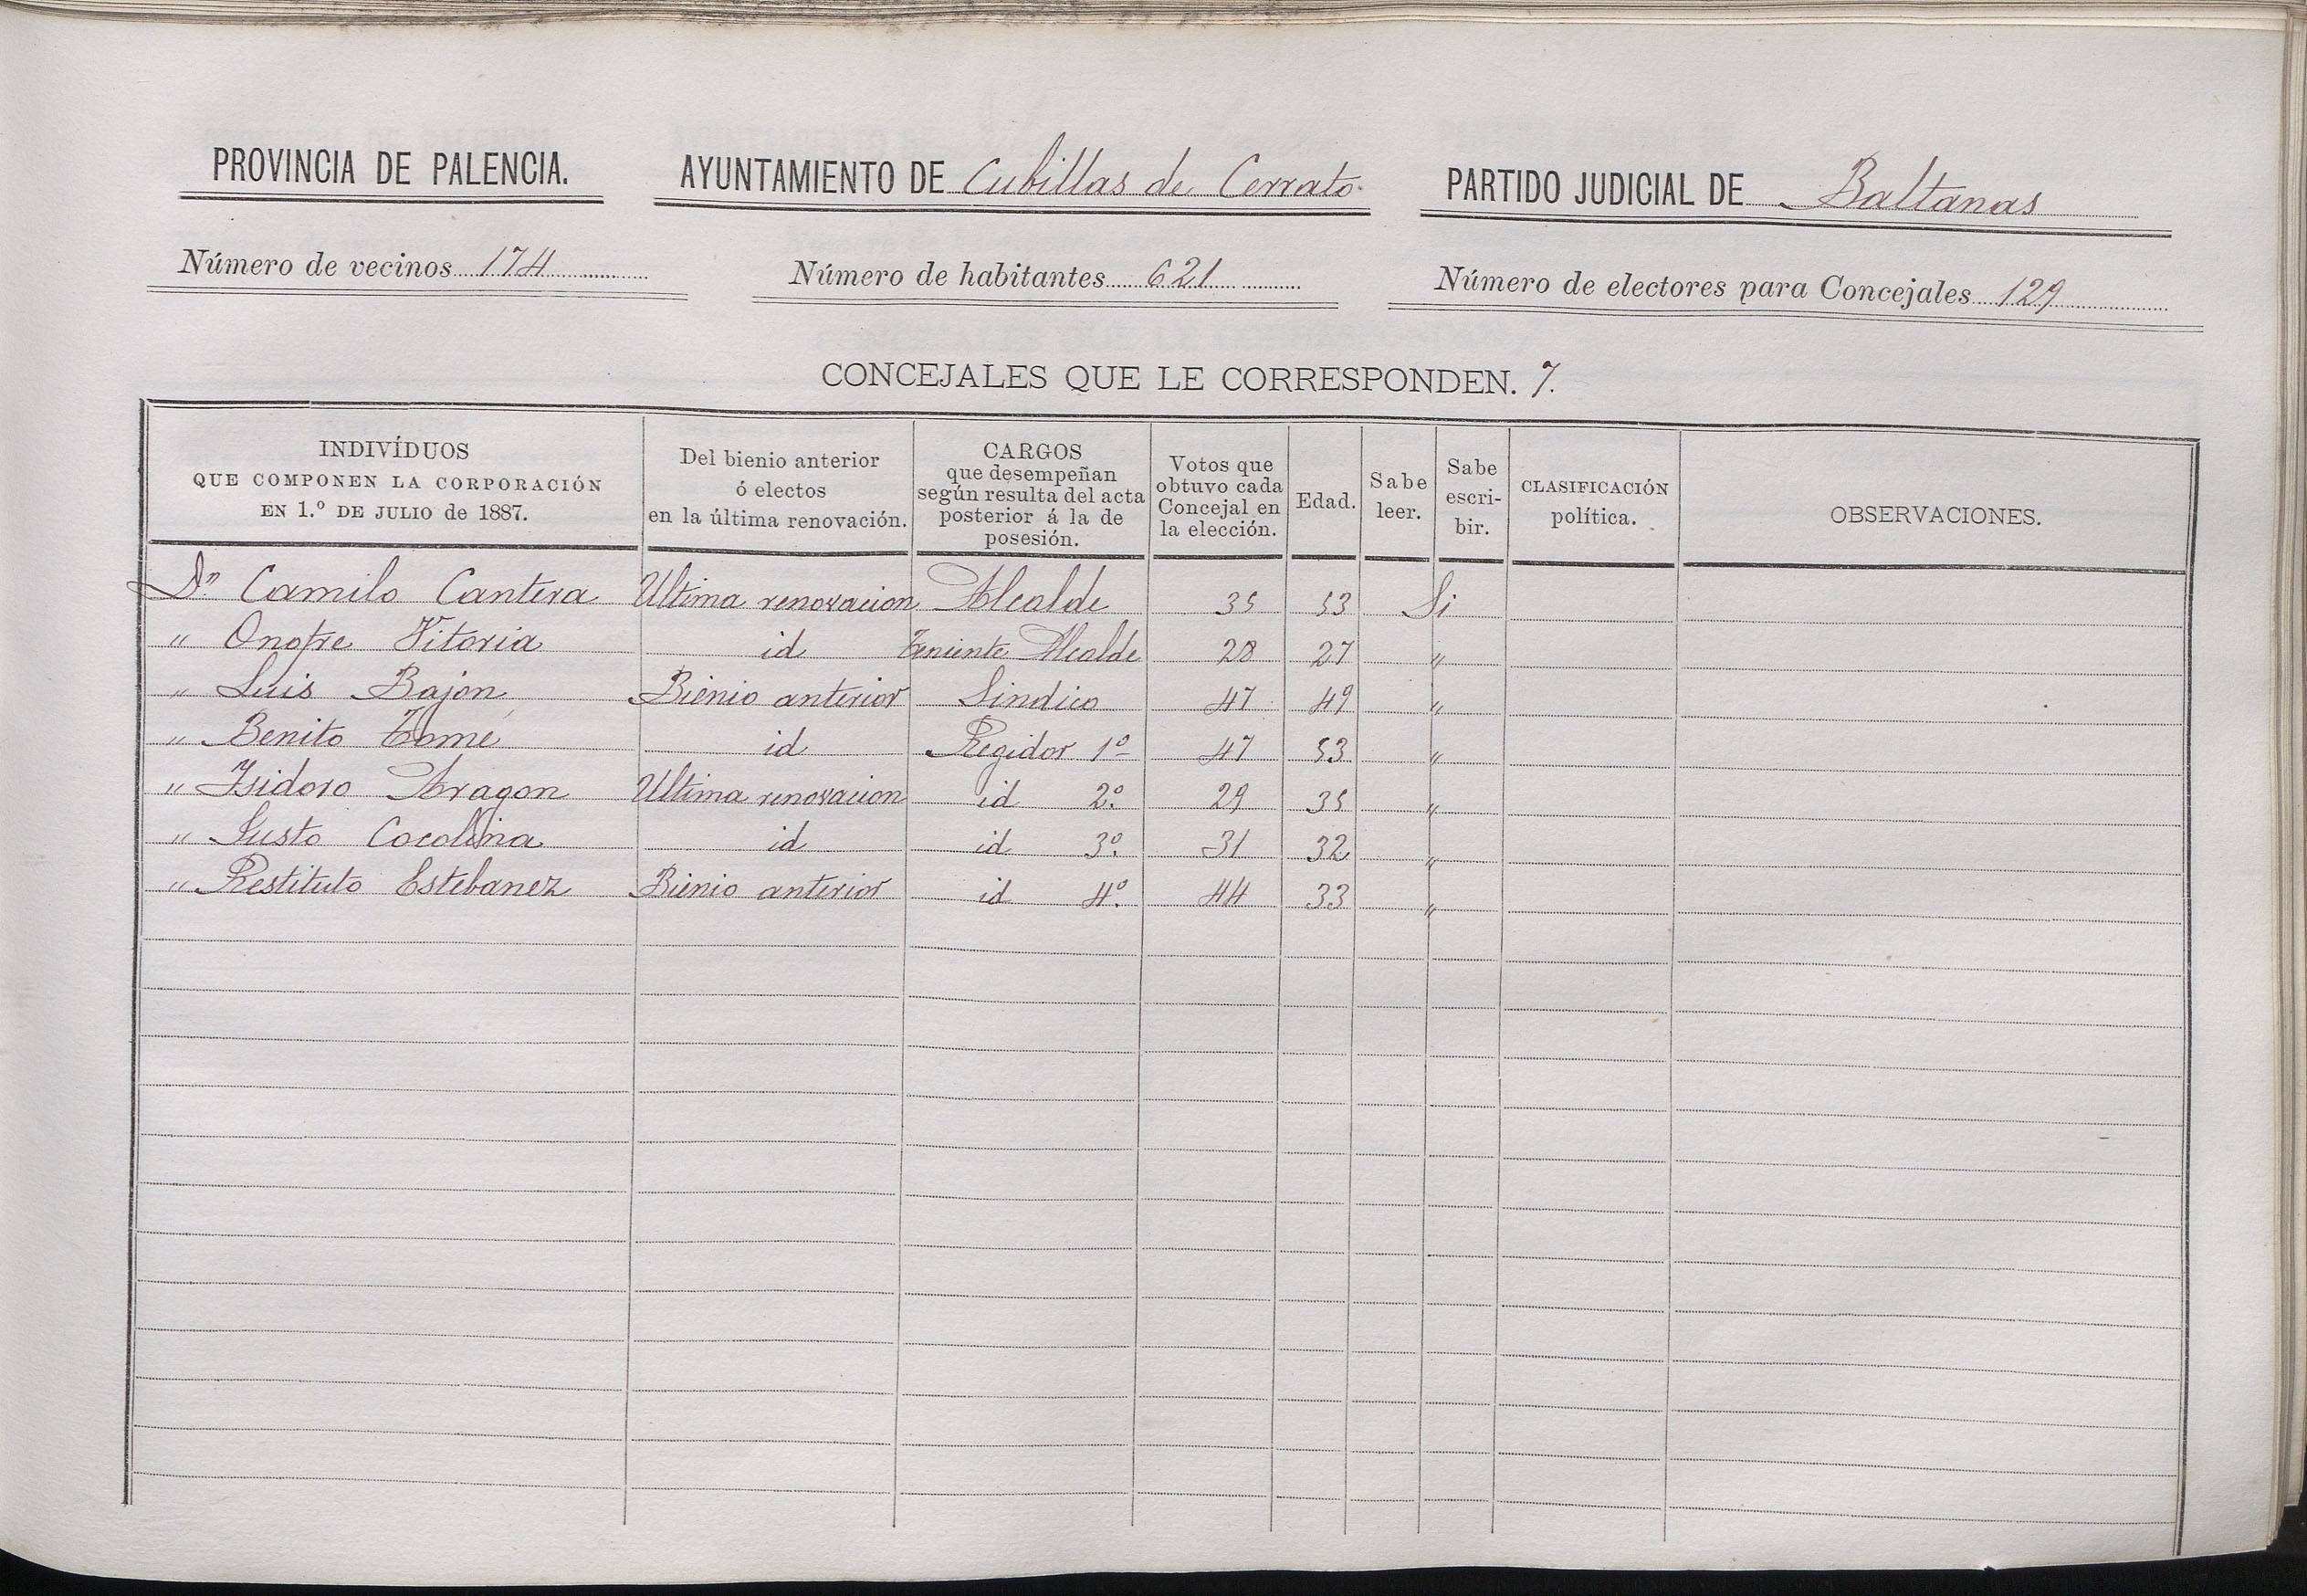 PROVINCIA DE PALENCIA. AYUNTAMIENTO DE Cubillas de Cerrato. PARTIDO JUDICIAL DE Baltanas
Número de vecinos 174 Número de habitantes 621 Número de electores para Concejales 129
CONCEJALES QUE LE CORRESPONDEN. 7.
INDIVÍDUOS
QUE COMPONEN LA CORPORACIÓN
EN 1.º DE JULIO de 1887.
Del bienio anterior
ó electos
en la última renovación.
CARGOS
que desempeñan
según resulta del acta
posterior á la de
posesión.
Votos que
obtuvo cada
Concejal en
la elección.
Edad.
Sabe
leer.
Sabe
escri-
bir.
CLASIFICACIÓN
política.
OBSERVACIONES.
Dn Camilo Cantera Ultima renovacion Alcalde 35 53 Si
" Onofre Vitoria id Teniente Alcalde 28 27 "
" Luis Bajon Bienio anterior Sindico 47 49 "
" Benito Tomé id Regidor 1º 47 53 "
" Isidoro Aragon Ultima renovacion id 2º 29 35 "
" Justo Cocolina id id 3º 31 32 "
" Restituto Estebanez Bienio anterior id 4º 44 33 "